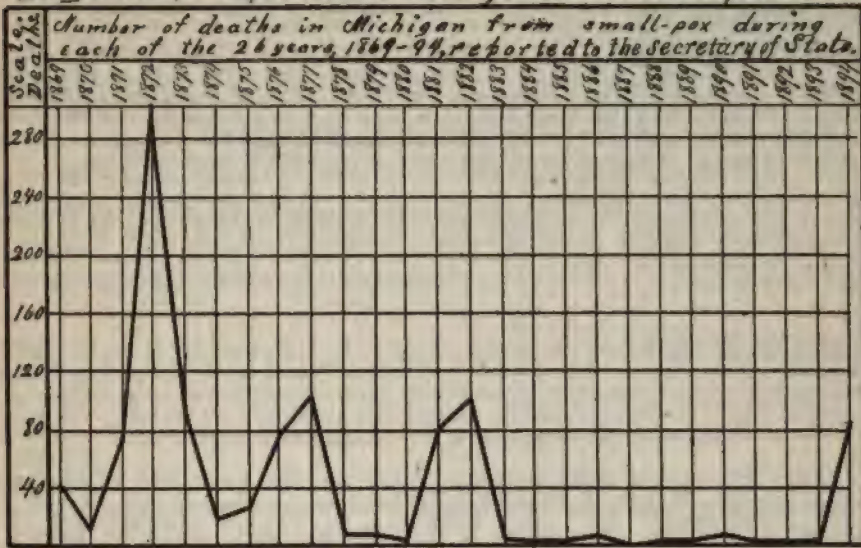 Number of deaths in Michigan from small-pox during
each of the 26 years, 1869-94, reported to the Secretary of State.
Scale; Deaths
1869 1870 1871 1872 1873 1874 1875 1876 1877 1878 1879 1880 1881 1882 1883 1884 1885 1886 1887 1888 1889 1890 1891 1892 1893 1894
280
240
200
160
120
80
40